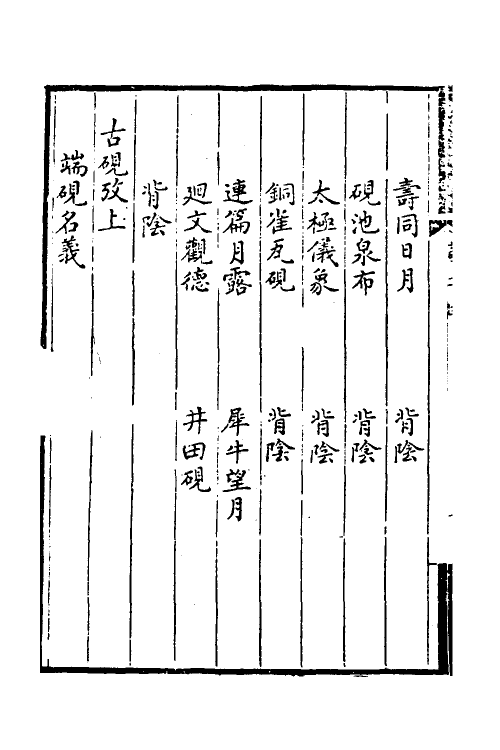 壽同日月　背陰
硯池泉布　背陰
太極儀象　背陰
銅雀瓦硯　背陰
連篇月露　犀牛望月
廻文觀德　井田硯
背陰
古硯攷上
端硯名義